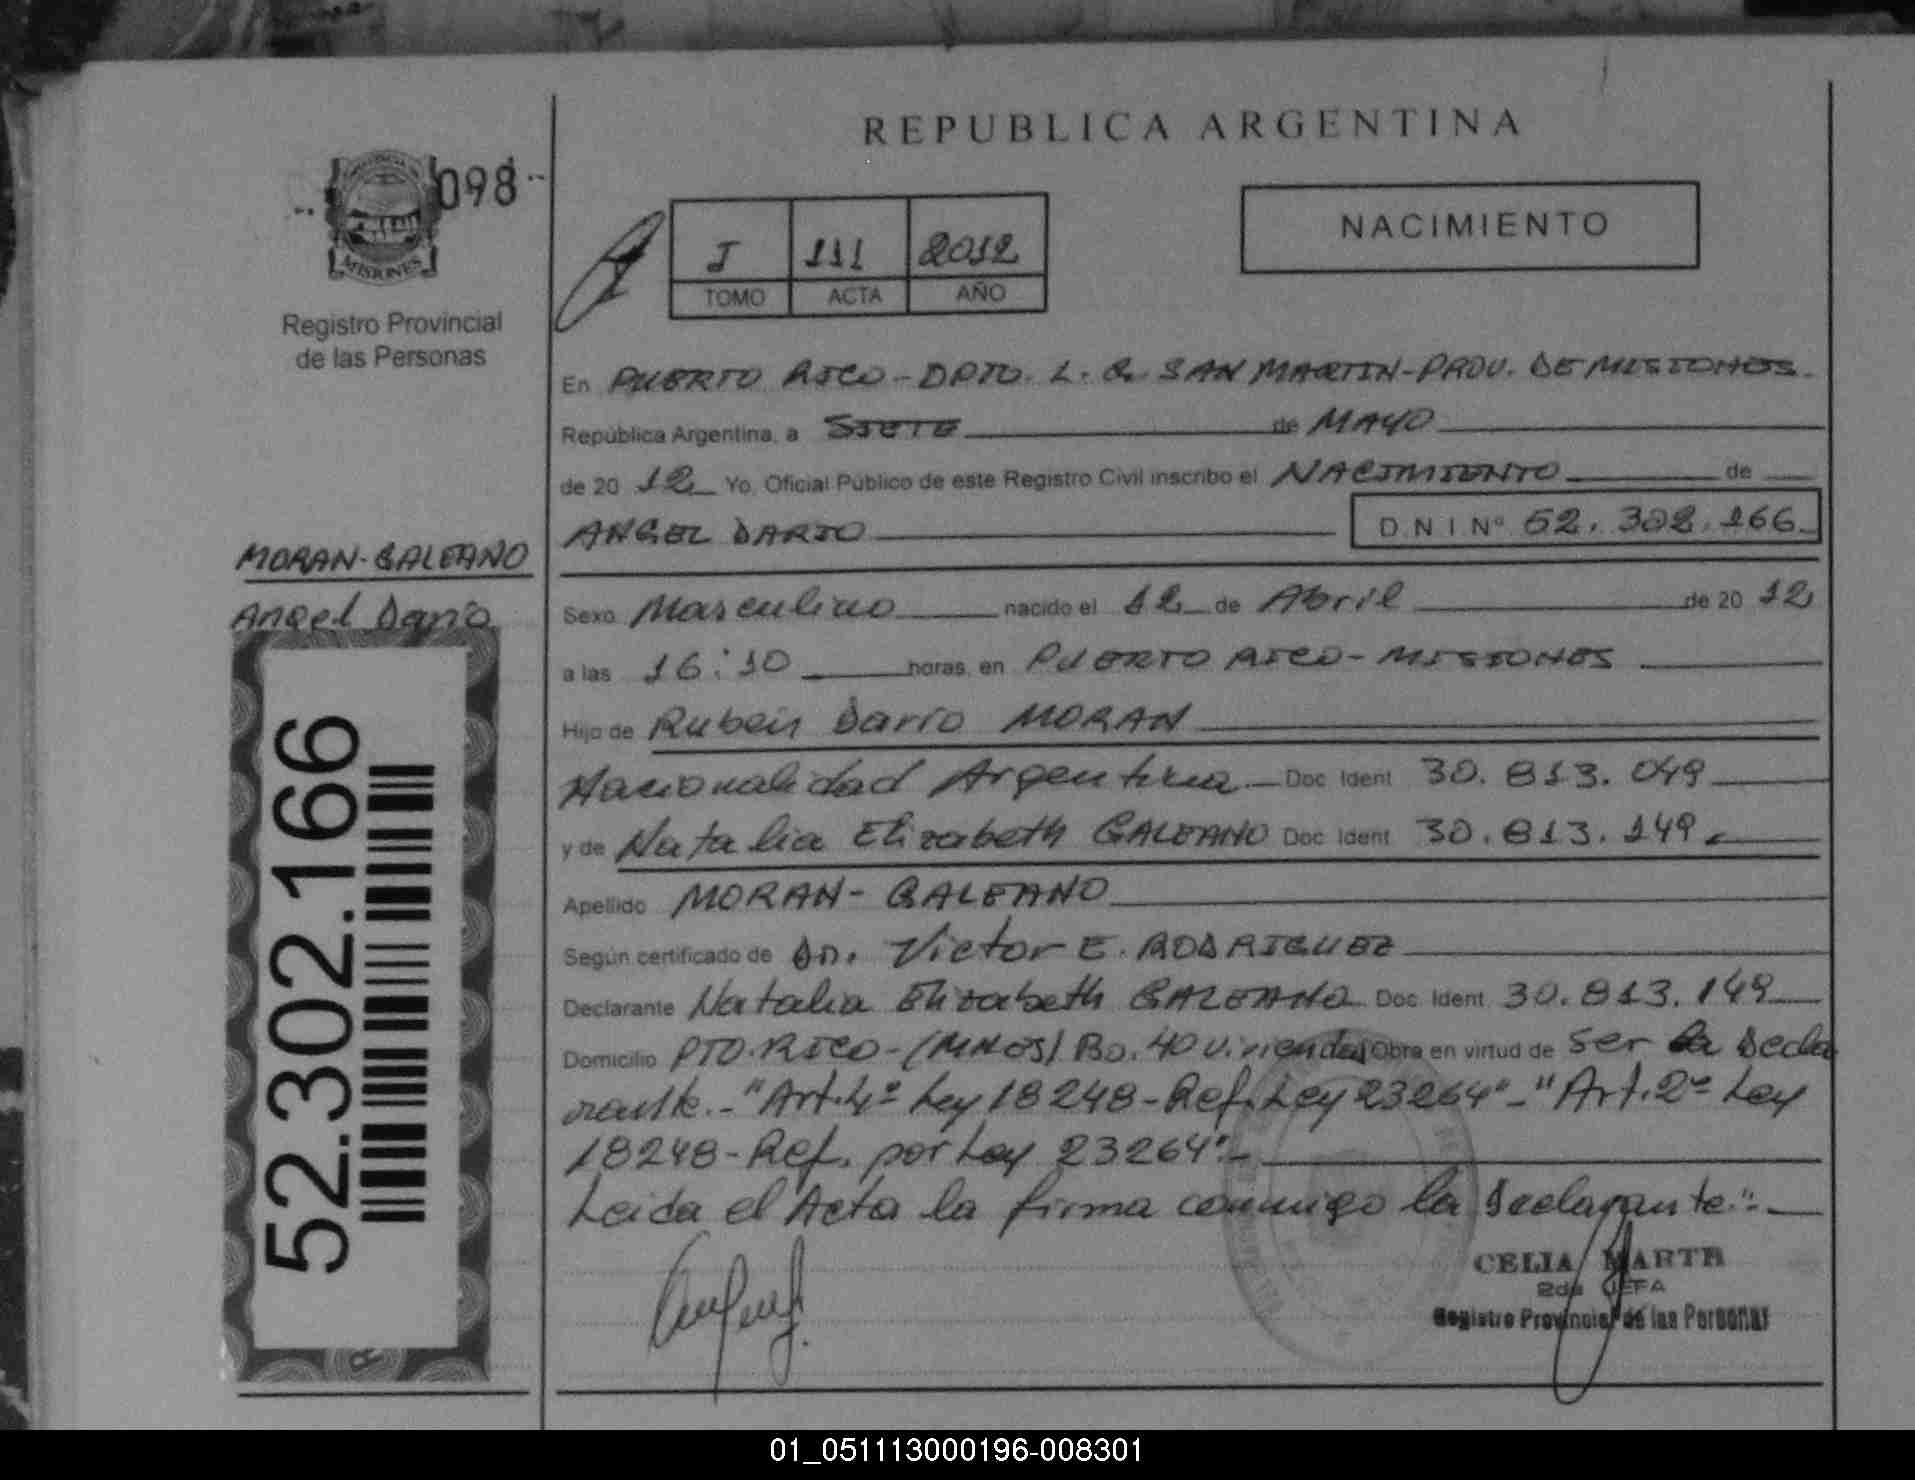 REPUBLICA ARGENTINA
098
MISIONES
Registro Provincial
de las Personas
I 111 2012
TOMO ACTA AÑO
NACIMIENTO
En PUERTO RICO-DPTO. L. G. SAN MARTIN-PROV. DE MISIONES.
República Argentina, a SIETE de MAYO
de 20 12 Yo, Oficial Público de este Registro Civil inscribo el NACIMIENTO de
ANGEL DARIO D.N.I.Nº 52.302.166
MORAN-GALEANO
Angel Dario
52.302.166
Sexo Masculino nacido el 12 de Abril de 20 12
a las 16:10 horas, en PUERTO RICO-MISIONES
Hijo de Ruben Dario MORAN
Nacionalidad Argentina Doc. Ident. 30.813.049
y de Natalia Elizabeth GALEANO Doc. Ident. 30.813.149.
Apellido MORAN-GALEANO
Según certificado de Dr. Victor E. RODRIGUEZ
Declarante Natalia Elizabeth GALEANO Doc. Ident. 30.813.149
Domicilio PTO.RICO-(MNES) Bo. 40 Viviendas Obra en virtud de ser la Decla
rante.-"Art.4º Ley 18248-Ref.Ley 23264"-"Art.2º Ley
18248-Ref. por Ley 23264".-
Leida el Acta la firma conmigo la Declarante".-
CELIA MARTA
2da JEFA
Registro Provincial de las Personas
01_051113000196-008301